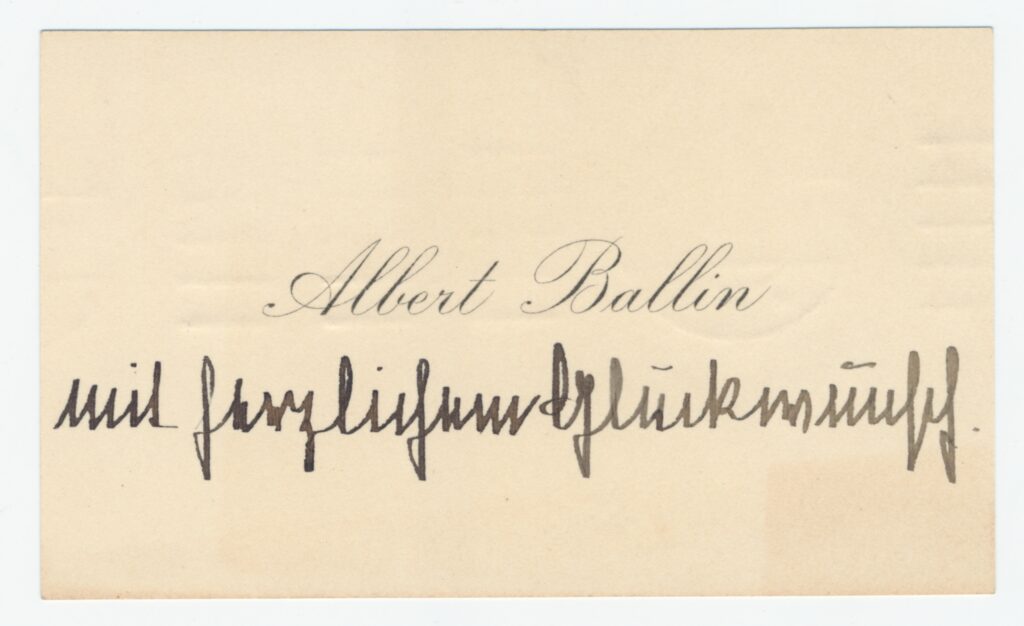 Albert Ballin
mit herzlichem Glückwunsch.